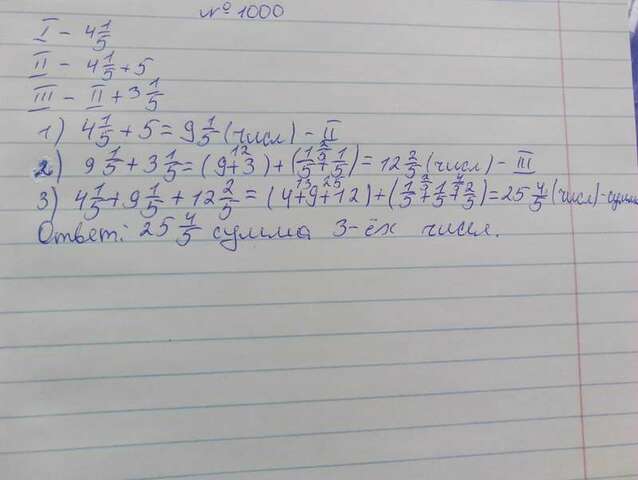 № 1000
I - 4 1/5
II - 4 1/5 + 5
III - II + 3 1/5
1) 4 1/5 + 5 = 9 1/5 (числ) - II
2) 9 1/5 + 3 1/5 = (9 + 3) 12 + (1/5 + 1/5) 2/5 = 12 2/5 (числ) - III
3) 4 1/5 + 9 1/5 + 12 2/5 = (4 + 9 + 12) 13 25 + (1/5 + 1/5 + 2/5) 2/5 4/5 = 25 4/5 (числ) - сумм
Ответ: 25 4/5 сумма 3-ёх числ.